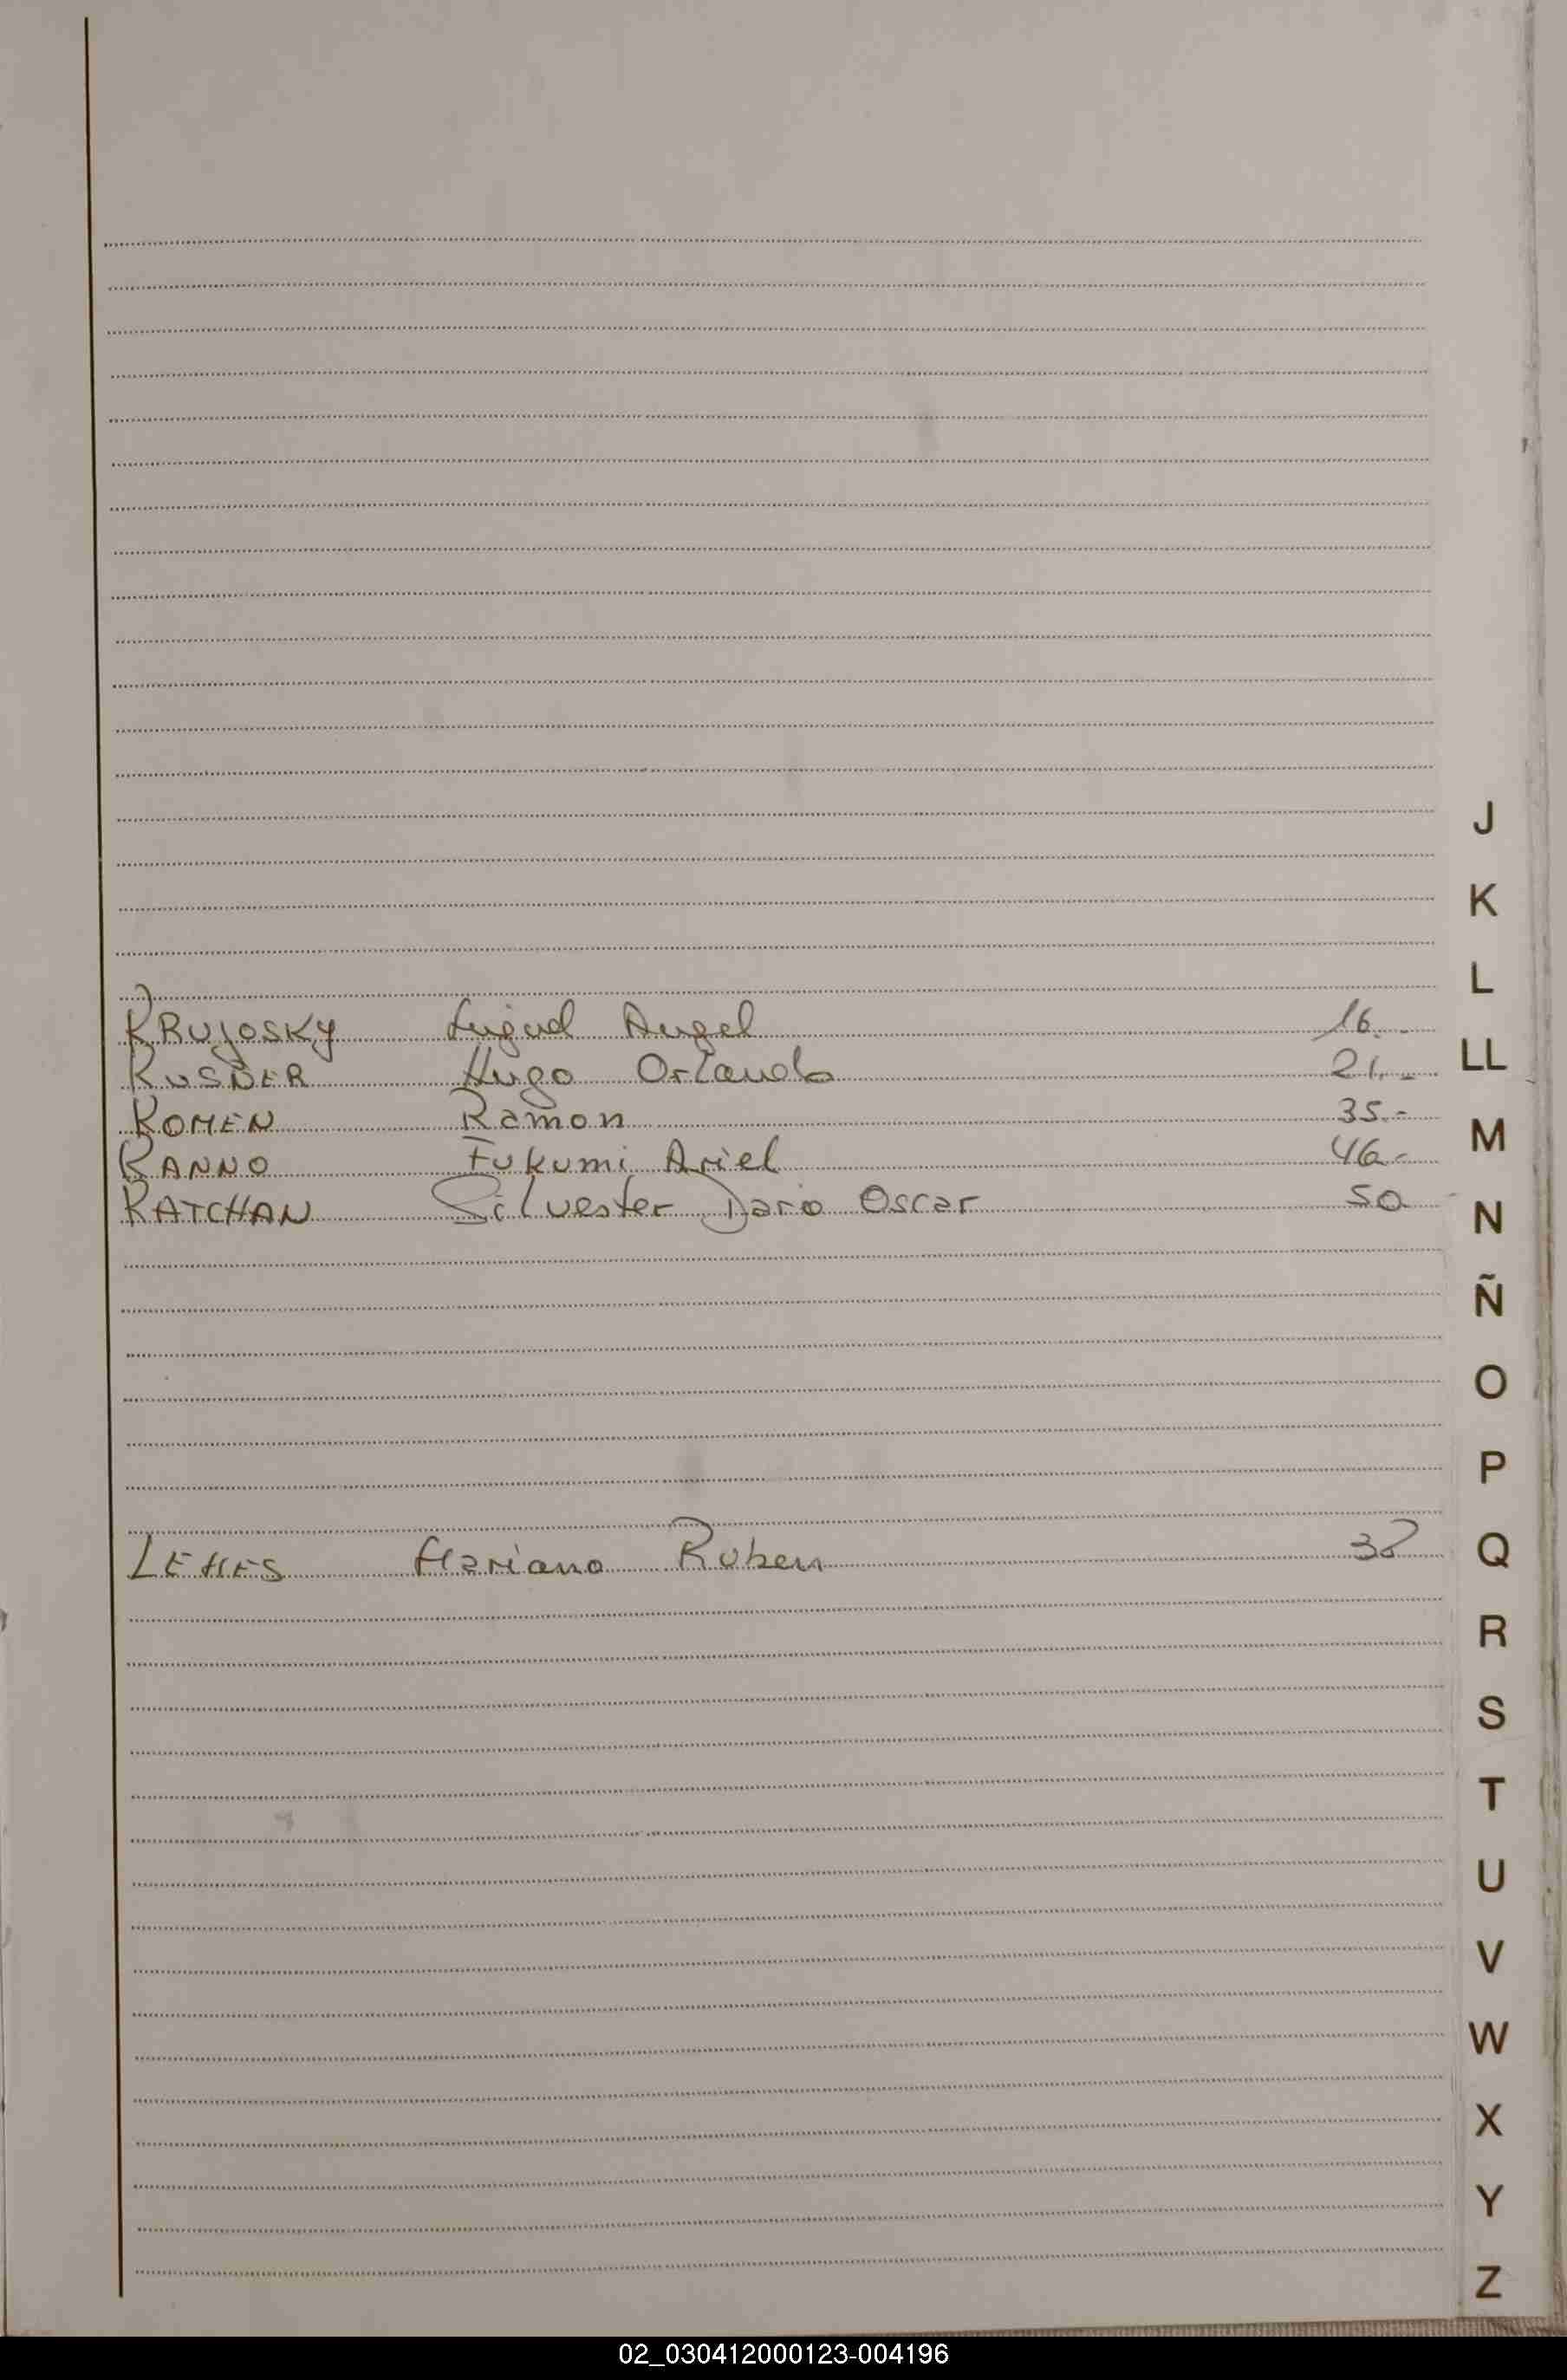 J
K
L
KRUJOSKY Miguel Angel 16.-
LL
KUSNER Hugo Orlando 21.-
KOMEN Ramon 35.-
M
KANNO Fukumi Ariel 46.-
KATCHAN Silvester Dario Oscar 50
N
Ñ
O
P
LEMES Mariano Ruben 38
Q
R
S
T
U
V
W
X
Y
Z
02_030412000123-004196